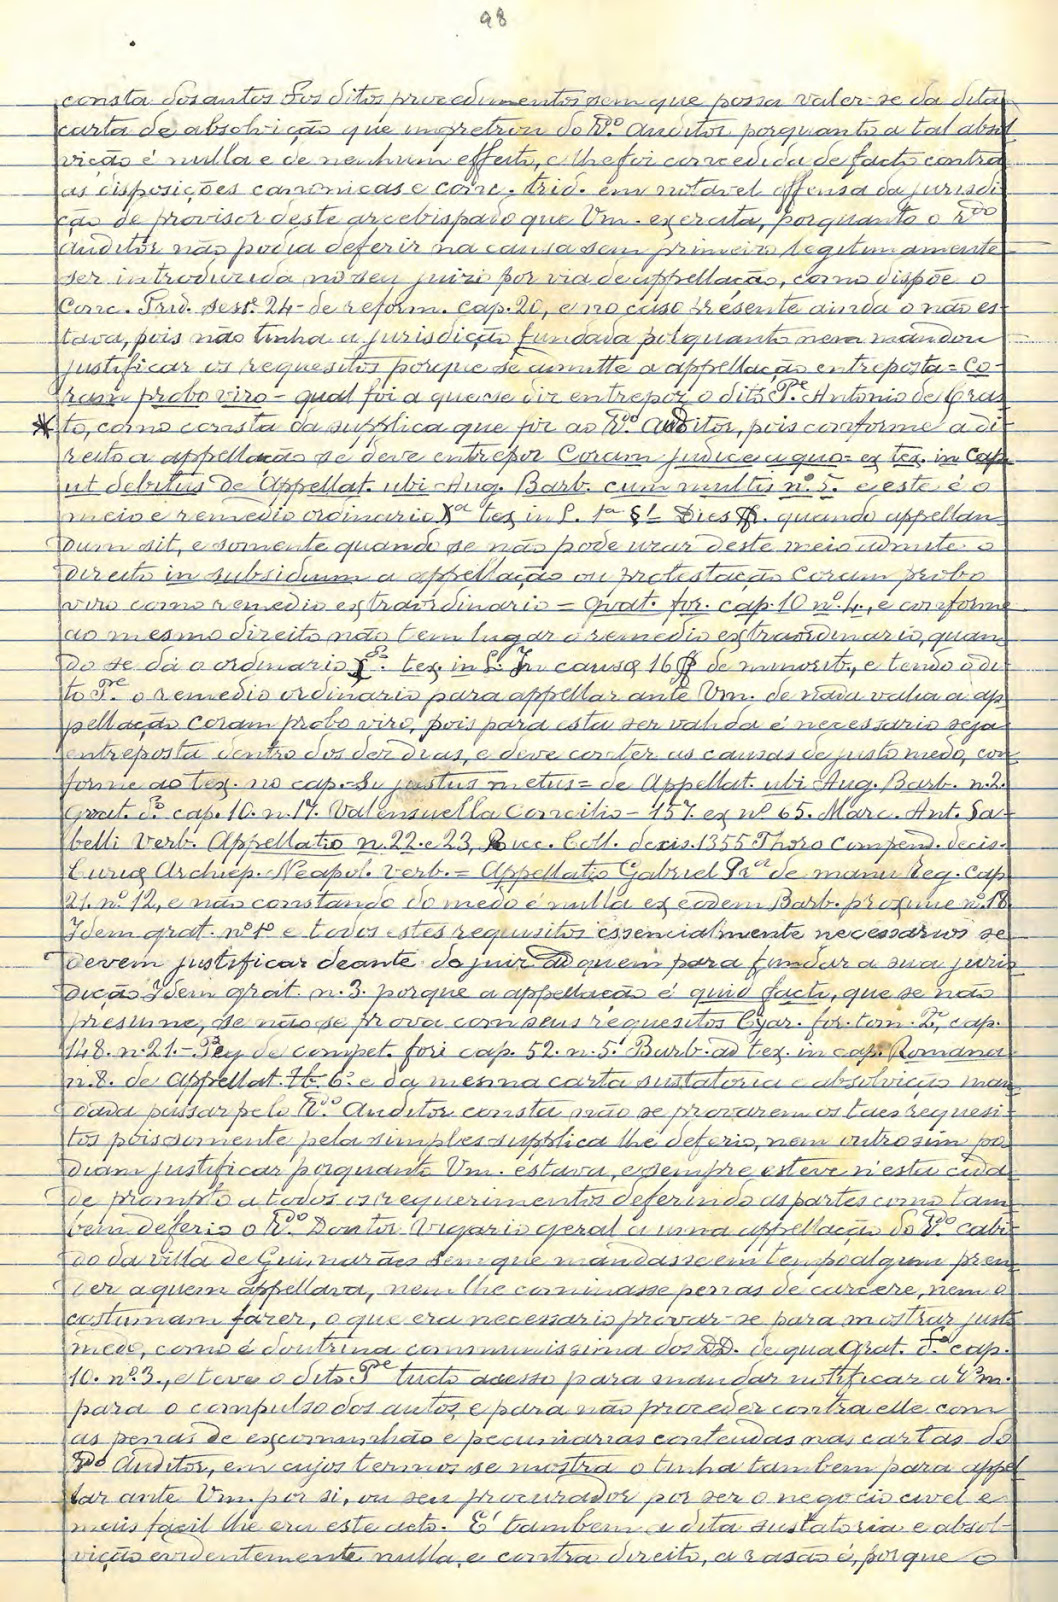 98
consta dos autos dos ditos procedimentos sem que possa valer-se da dita
carta de absolvição que impretrou do R.do Auditor porquanto a tal absol
vição é nulla e de nenhum effeito, e lhe foi concedida de facto contra
as disposições canonicas e conc. trid. em notavel offensa da jurisdi
ção de provisor deste arcebispado que Vm. exercita, porquanto o R.do
Auditor não podia deferir na causa sem primeiro legitimamente
ser introduzida no seu juizo por via de appellação, como dispõe o
Conc. Trid. sess. 24 de reform. cap. 20, e no caso presente ainda o não es-
tava, pois não tinha a jurisdicção fundada porquanto nem mandou
justificar os requesitos porque se admitte a appellação entreposta = Co-
ram probo viro - qual foi a que se diz entrepoz o dito P.e Antonio de Cras
to, como consta da supplica que fez ao R.do Auditor, pois conforme a di
reito a appellação se deve entrepor Coram judice a quo = ex tex. in cap.
ut debitus de Appellat. ubi Aug. Barb. cum multis nº 5. e este é o
meio e remedio ordinario tex in L. 1ª § Dies ff. quando appellan
dum sit, e somente quando se não pode uzar deste meio admite o
direito in subsidium a appellação ou protestação Coram probo
viro como remedio extraordinario = Grat. for. cap. 10 nº 4., e conforme
ao mesmo direito não tem lugar o remedio extraordinario, quan
do se dá o ordinario tex. in L. In causæ 16 ff de minorib., e tendo o di
to P.e o remedio ordinario para appellar ante Vm. de nada valia a ap
pellação coram probo viro, pois para esta ser valida é necessario seja
entreposta dentro dos dez dias, e deve conter as causas de justo medo, con
forme ao tex. no cap. Si justus metus = de Appellat. ubi Aug. Barb. n. 2.
Grat. d.º cap. 10. n. 17. Valensuella Concilio - 157. ex nº 65. Marc. Ant. Sa-
belli Verb. Appellatio n. 22. e 23, Coll. decis. 1355 Thoro Compend. decis.
Curiæ Archiep. Neapol. verb. = Appellatio Gabriel Pr.ª de manu Reg. cap
21. nº 12, e não constando do medo é nulla ex eodem Barb. proxime nº 18
Idem grat. e todos estes requisitos essencialmente necessarios se
devem justificar deante do juiz ad quem para fundar a sua juris
dição Idem grat. n. 3. porque a appellação é quid facti, que se não
presume, se não se prova com seus requesitos Cyar. for. tom. 2, cap.
148. n. 21. - Peg de compet. fori cap. 52. n. 5. Barb. ad tex. in cap. Romana
n. 8. de Appellat. 6º e da mesma carta sustatoria e absolvição man
dada passar pelo R.do Auditor consta não se provarem os taes requesi
tos pois somente pela simples supplica lhe deferio, nem outrosim po
diam justificar porquanto Vm. estava, e sempre esteve n'esta cida
de prompto a todos os requerimentos deferindo as partes como tam
bem deferio o R.do Doutor Vigario geral a uma appellação do R.do cabi
do da villa de Guimarães sem que mandasse em tempo algum pren
der a quem appellava, nem lhe cominasse penas de carcere, nem o
costumam fazer, o que era necessario provar-se para mostrar justo
medo, como é doutrina communissima dos DD. de qua Grat. d.ª cap.
10. nº 3., e teve o dito P.e tucto acesso para mandar notificar a Vm.
para o compulso dos autos, e para não proceder contra elle com
as penas de excomunhão e pecuniarias conteudas nas cartas do
R.do Auditor, em cujos termos se mostra o tinha tambem para appel
lar ante Vm. por si, ou seu procurador por ser o negocio civel e
mais facil lhe era este acto. E' tambem a dita sustatoria e absol-
vição evidentemente nulla, e contra direito, a rasão é, porque o